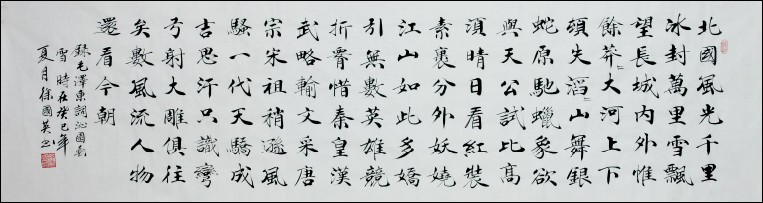 北國風光千里
冰封萬里雪飄
望長城内外惟
餘莽〻大河上下
頓失滔〻山舞銀
蛇原馳蠟象欲
與天公試比高
須晴日看紅裝
素裹分外妖嬈
江山如此多嬌
引無數英雄競
折腰惜秦皇漢
武略輸文采唐
宗宋祖稍遜風
騷一代天驕成
吉思汗只識彎
弓射大雕俱往
矣數風流人物
還看今朝
錄毛澤東詞沁園春
雪時在癸巳年
夏月徐國英書